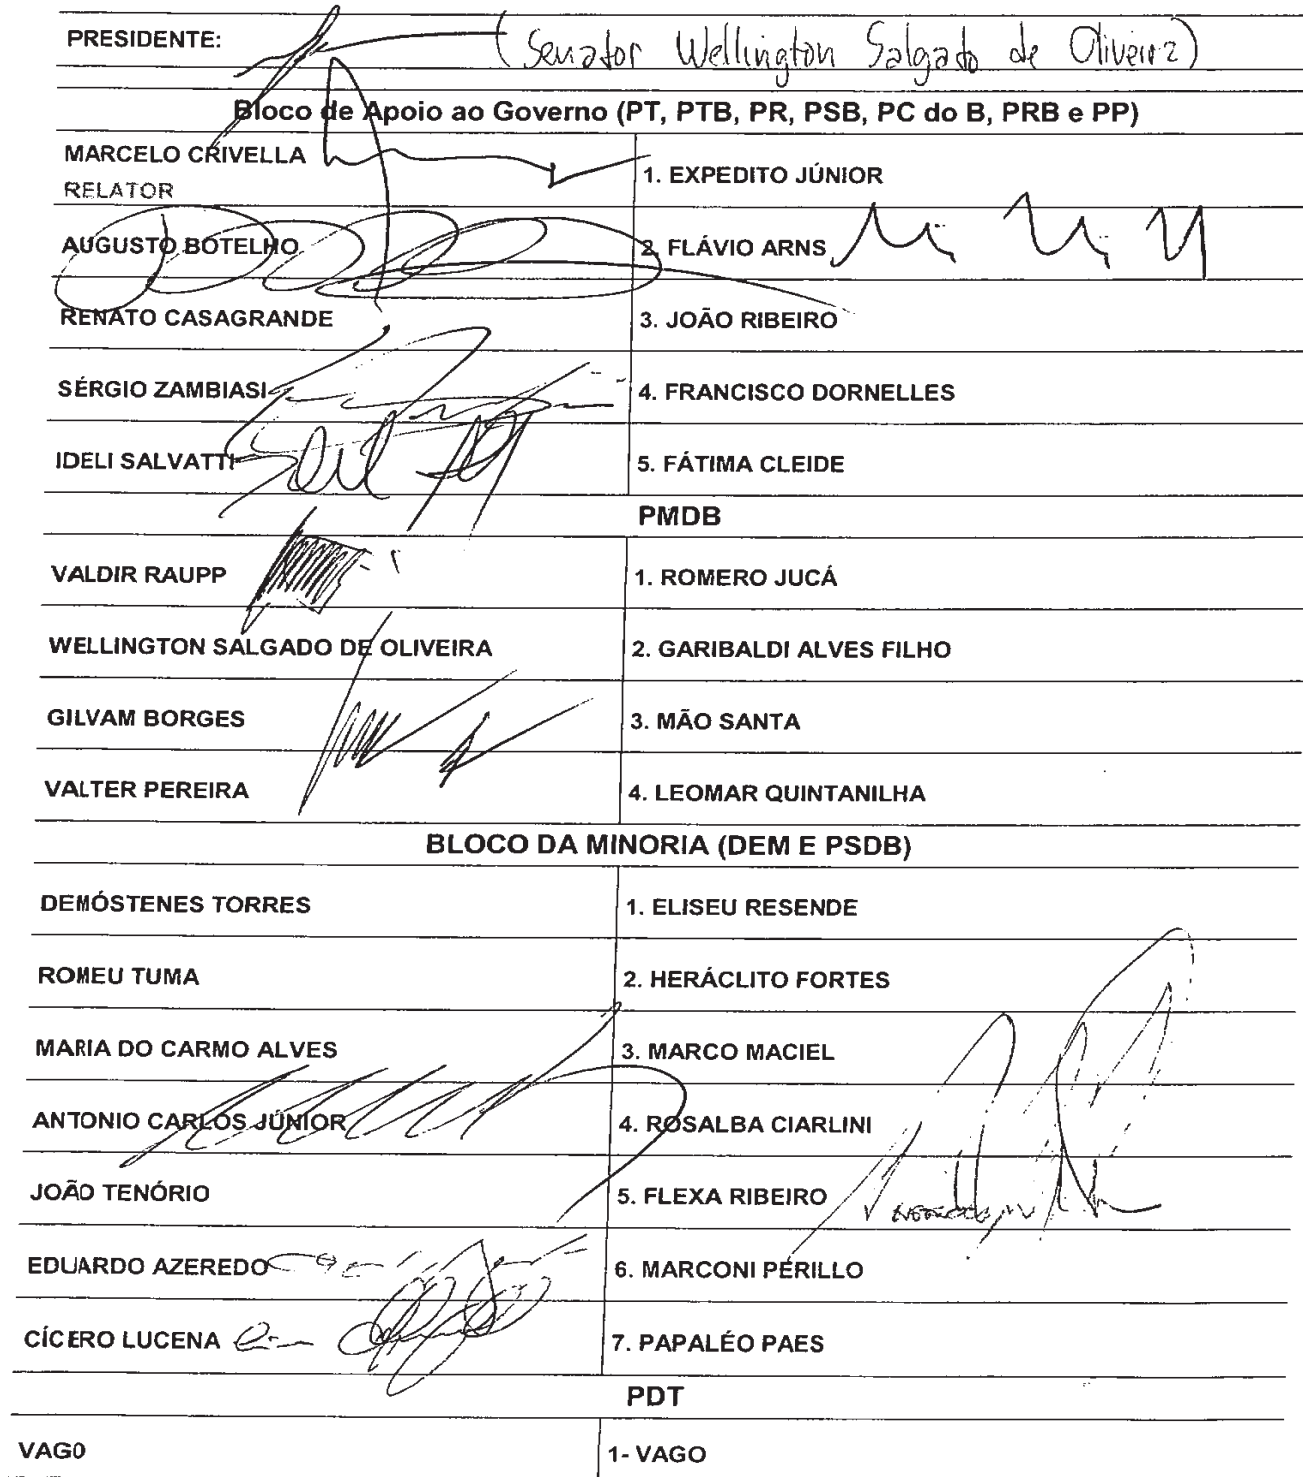 PRESIDENTE: (Senador Wellington Salgado de Oliveira)
Bloco de Apoio ao Governo (PT, PTB, PR, PSB, PC do B, PRB e PP)
MARCELO CRIVELLA
RELATOR
1. EXPEDITO JÚNIOR
AUGUSTO BOTELHO
2. FLÁVIO ARNS
RENATO CASAGRANDE
3. JOÃO RIBEIRO
SÉRGIO ZAMBIASI
4. FRANCISCO DORNELLES
IDELI SALVATTI
5. FÁTIMA CLEIDE
PMDB
VALDIR RAUPP
1. ROMERO JUCÁ
WELLINGTON SALGADO DE OLIVEIRA
2. GARIBALDI ALVES FILHO
GILVAM BORGES
3. MÃO SANTA
VALTER PEREIRA
4. LEOMAR QUINTANILHA
BLOCO DA MINORIA (DEM E PSDB)
DEMÓSTENES TORRES
1. ELISEU RESENDE
ROMEU TUMA
2. HERÁCLITO FORTES
MARIA DO CARMO ALVES
3. MARCO MACIEL
ANTONIO CARLOS JÚNIOR
4. ROSALBA CIARLINI
JOÃO TENÓRIO
5. FLEXA RIBEIRO
EDUARDO AZEREDO
6. MARCONI PERILLO
CÍCERO LUCENA
7. PAPALÉO PAES
PDT
VAG0
1- VAGO